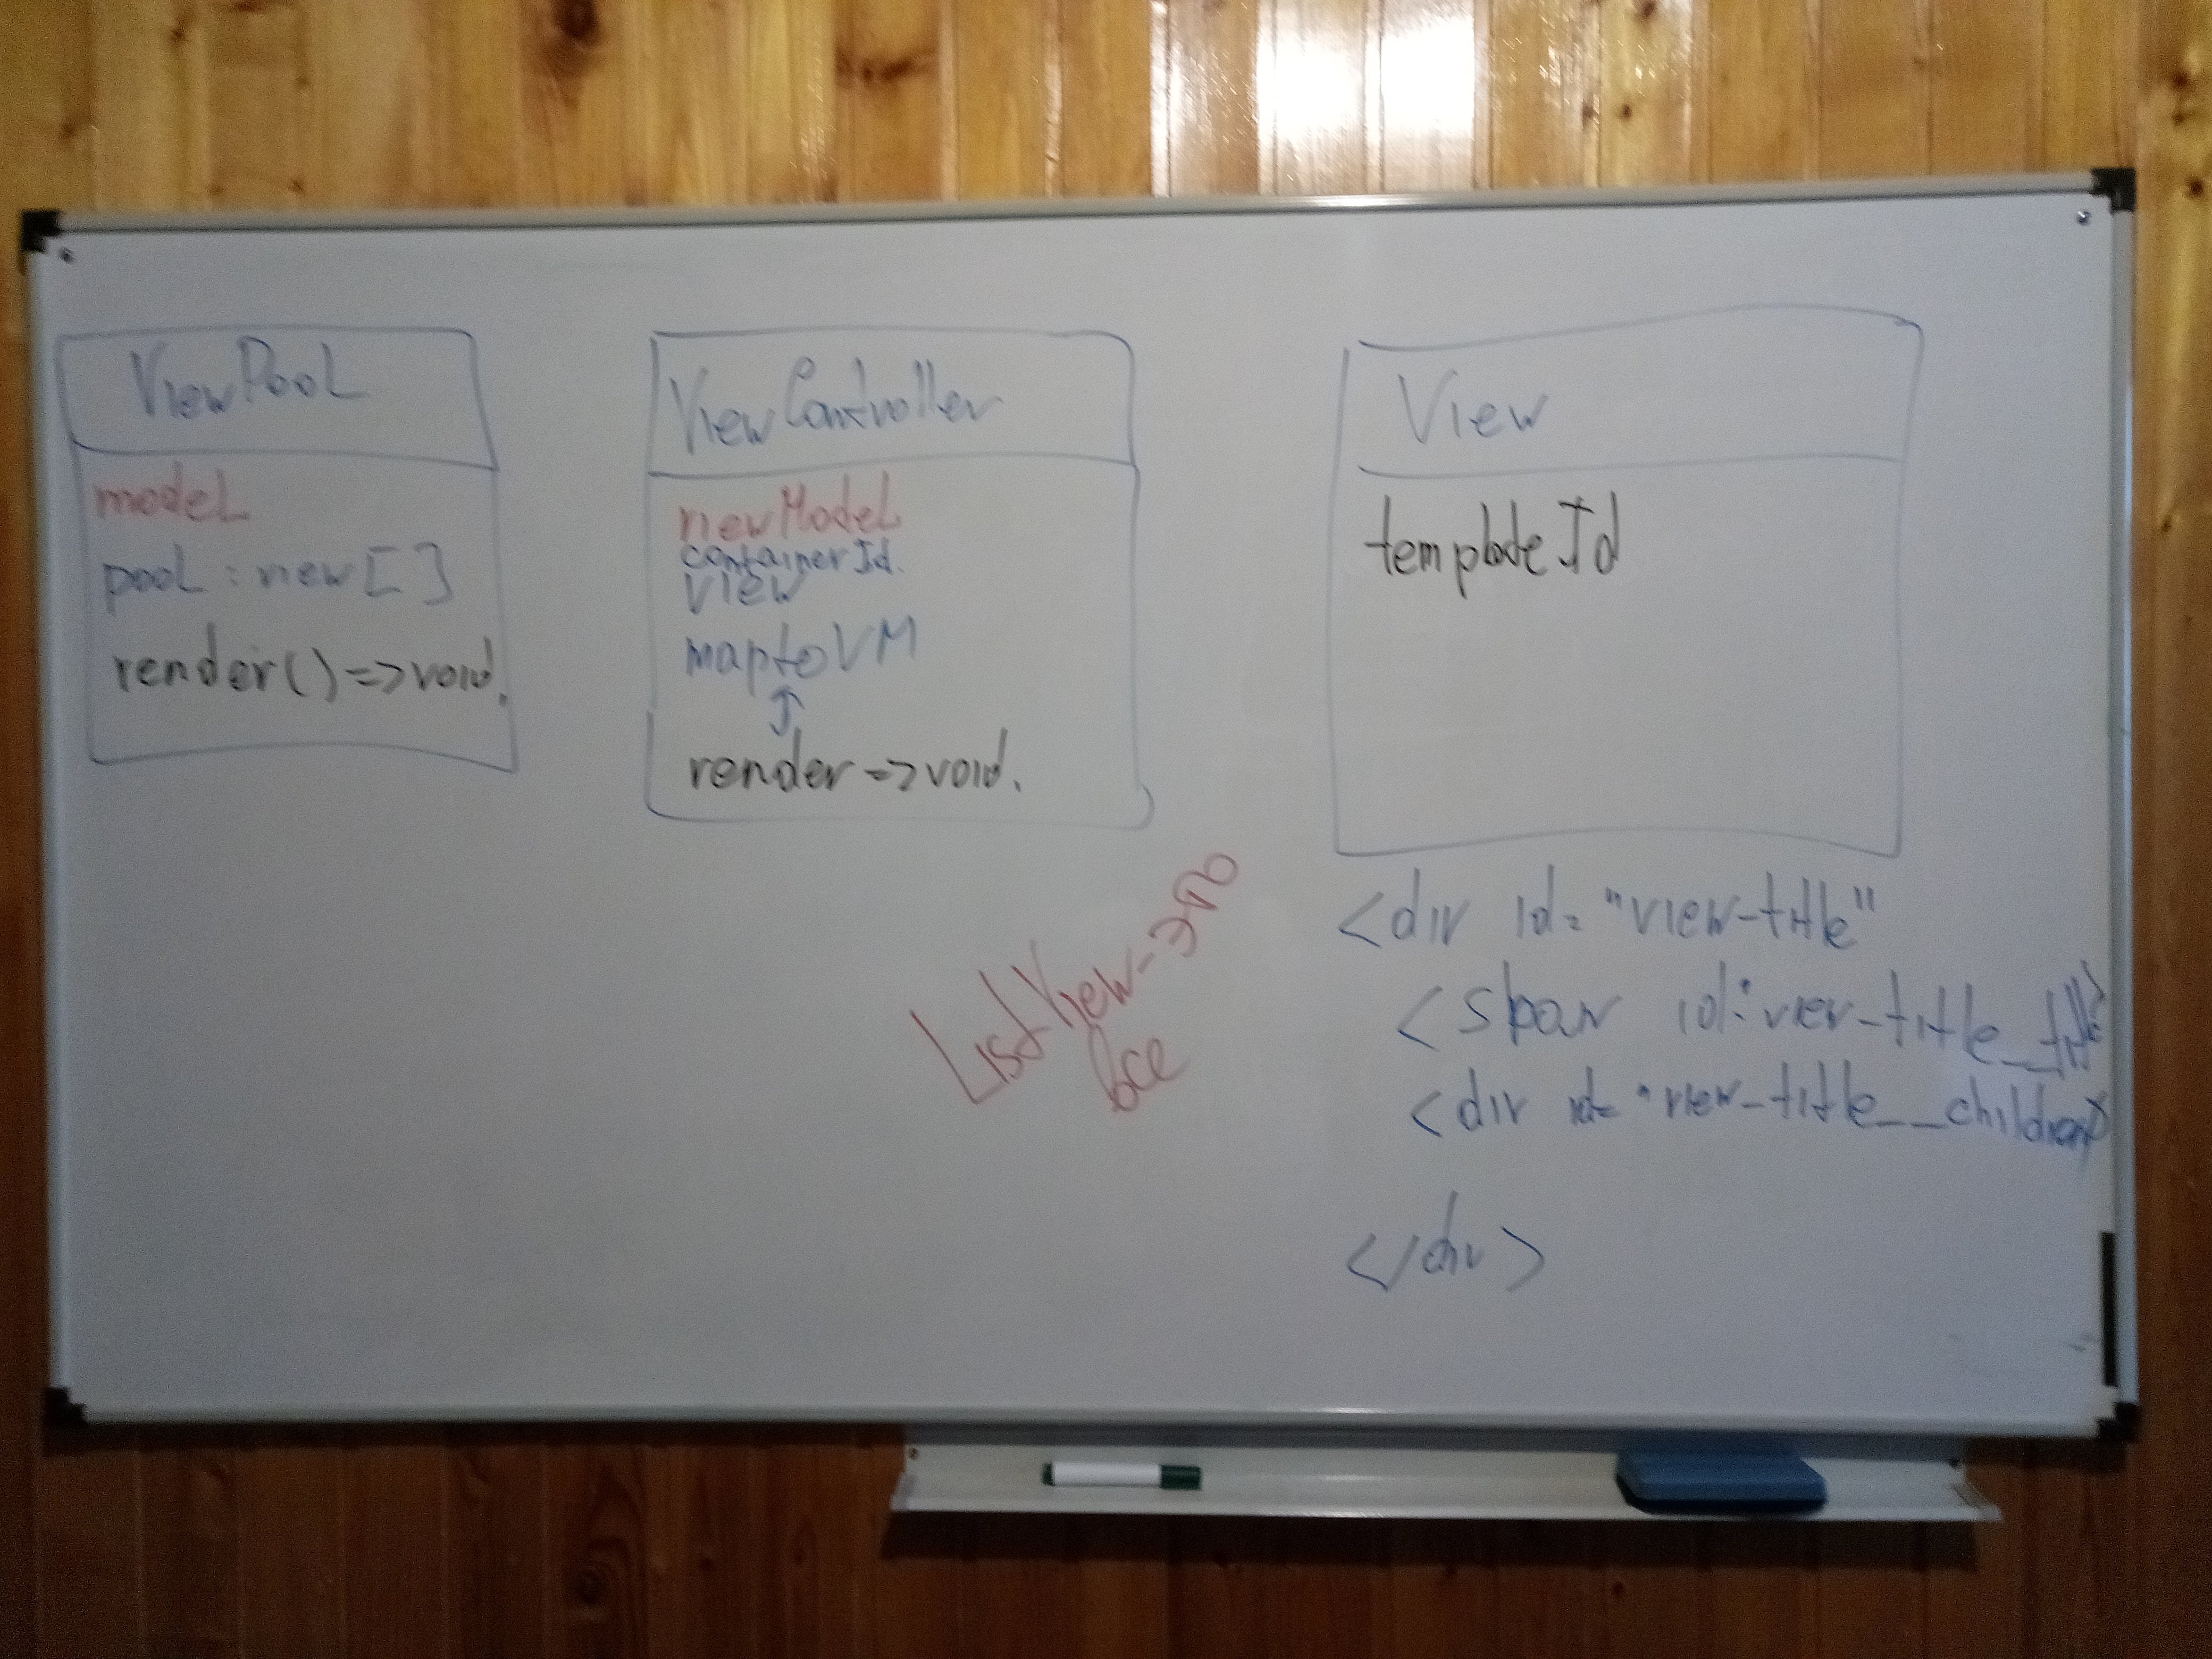 ViewPool
model
pool : view[]
render()=>void.
ViewController
newModel
containerId.
View
maptoVM
render=>void.
View
templateId
<div id="view-title"
<span id="view-title__title">
<div id="view-title__children>
</div>
ListView-это
все